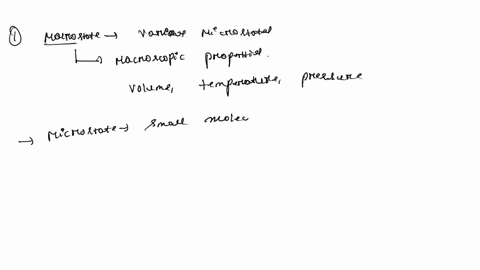 ① Macrostate → Various Microstates
↳ Macroscopic properties.
Volume, temperature, pressure
→ Microstate → Small molec